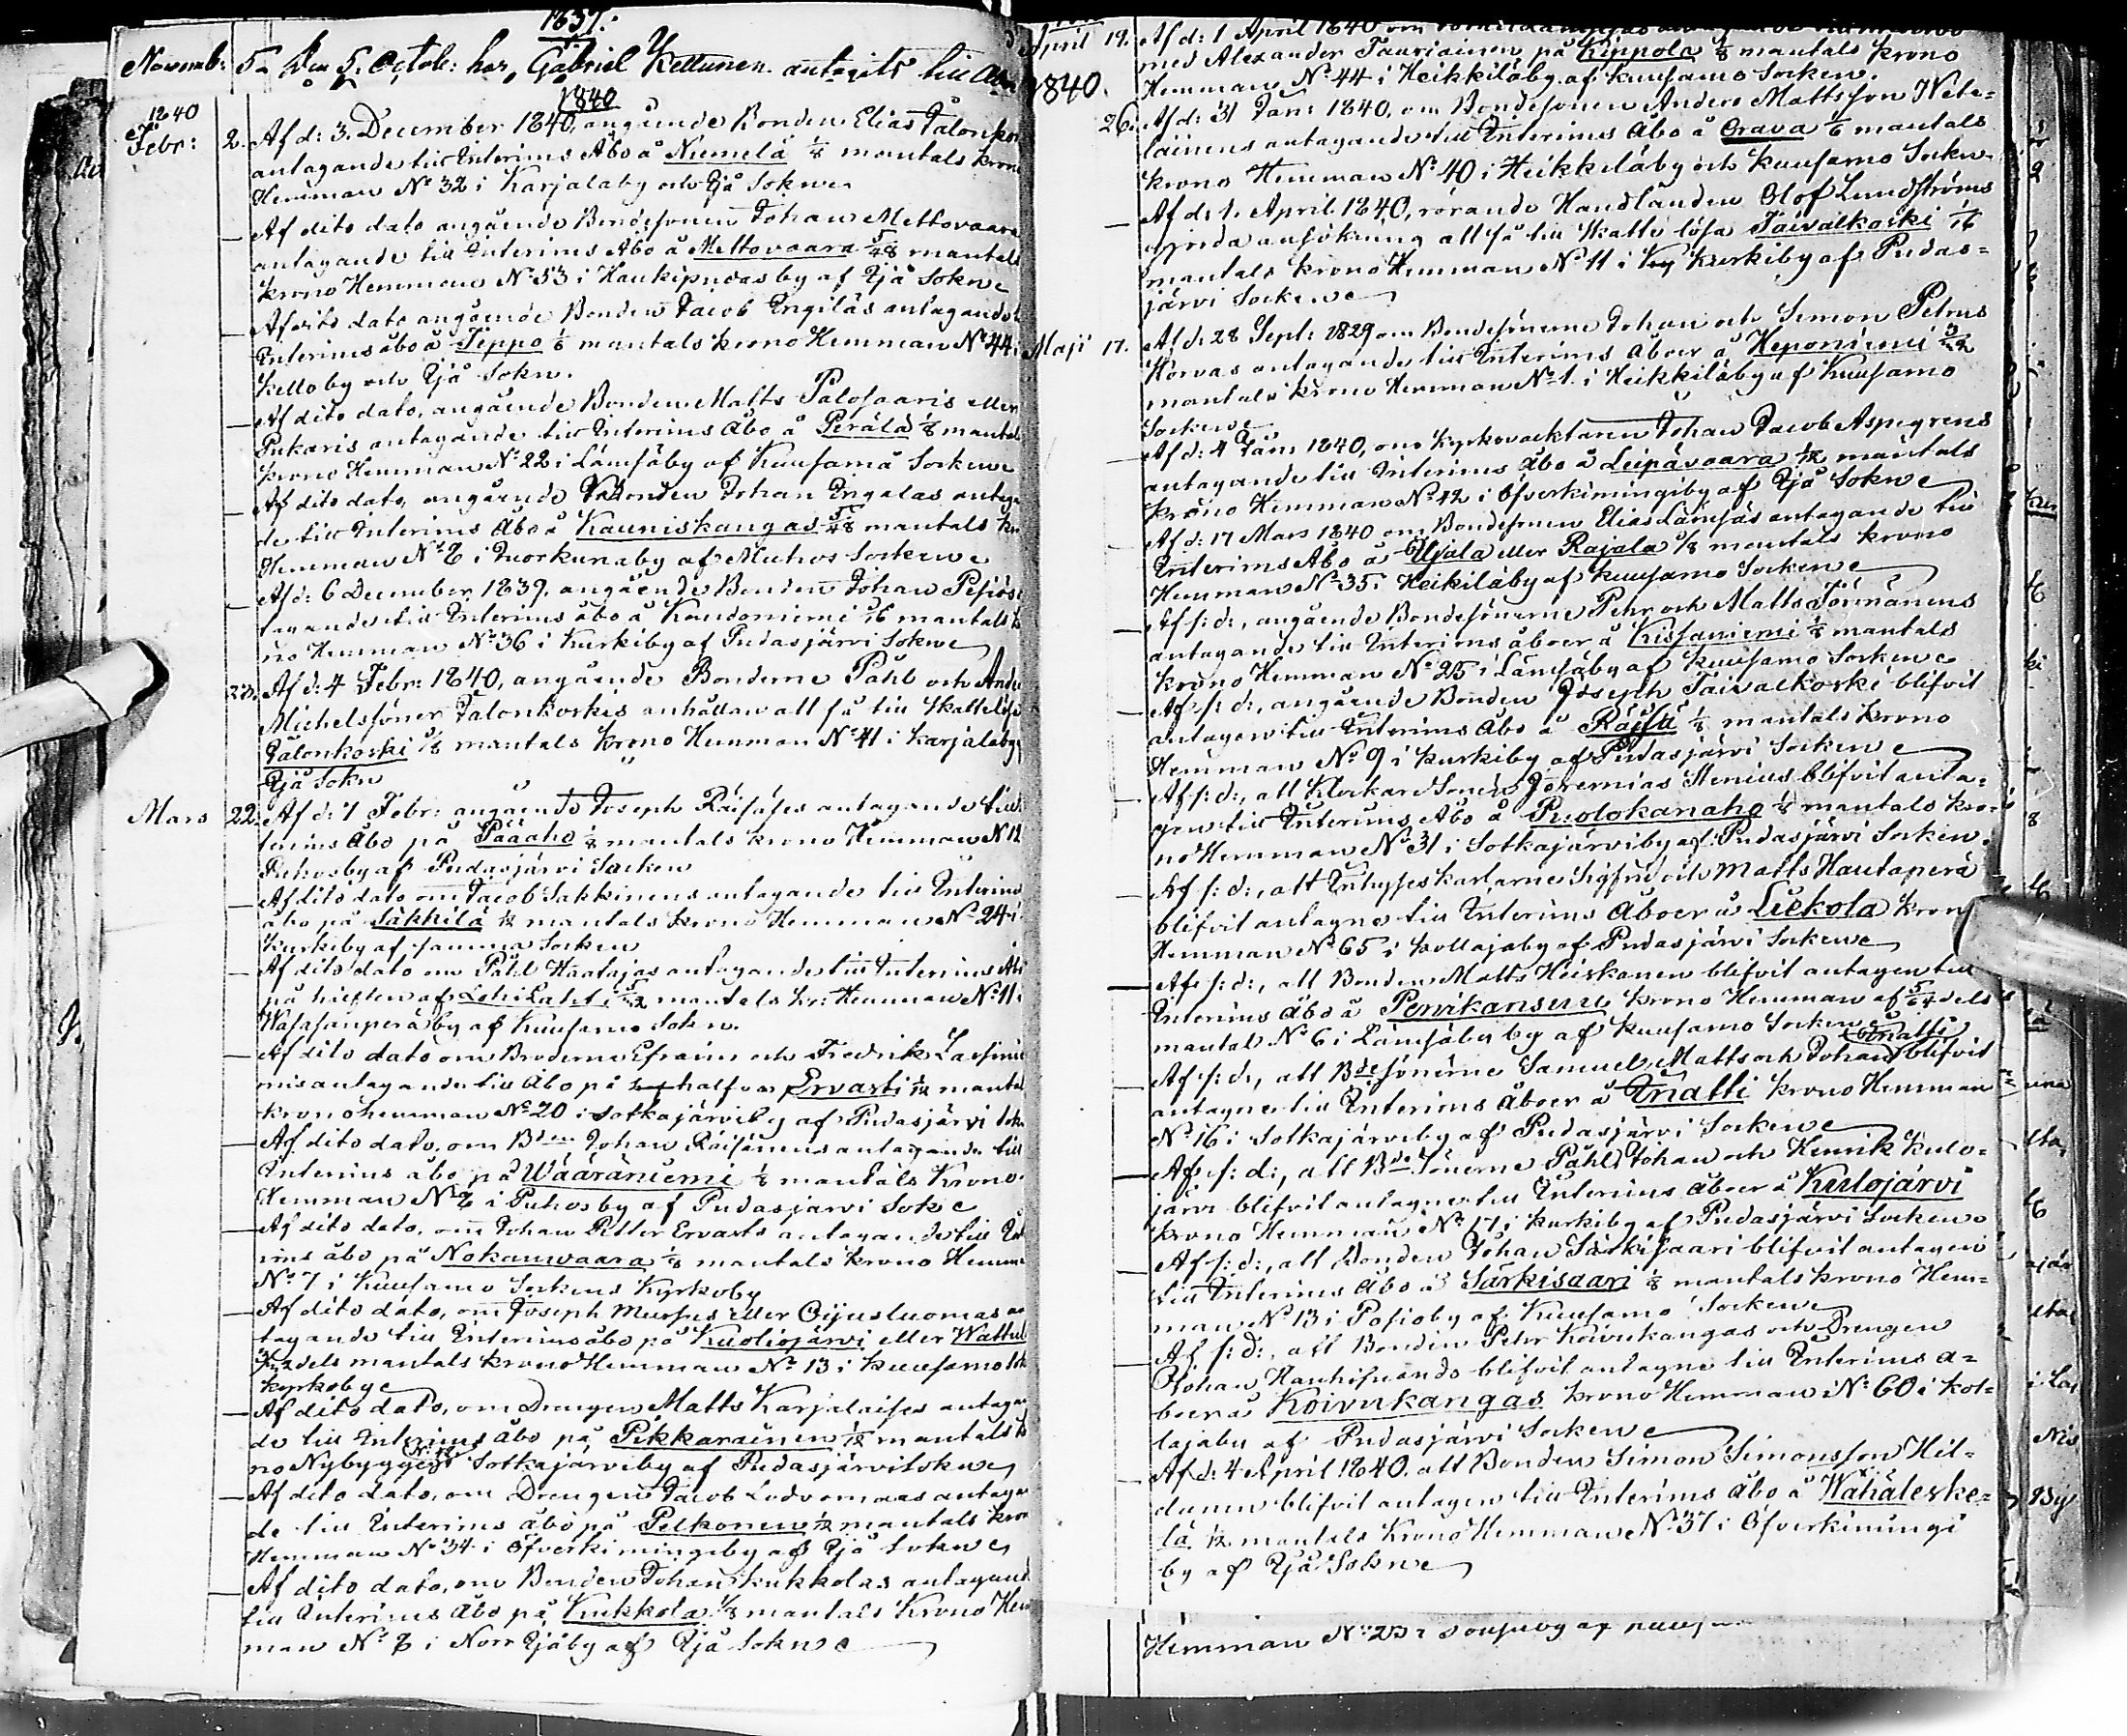 1837.
Novemb: 5. Den 5. Octob: har Gabriel Kettunen antagits till
1840
1840
Febr: 2. Af d: 3. December 1840, angående Bonden Elias Jalonkos
antagande till Interims Åbo å Niemelä 1/8 mantals krono
Hemman No 32 i Karjalaby och Ijå Sokn
— Af dito dato angående Bondesonen Johan Mettovaara
antagande till Interims Åbo å Mettovaara 5/48 mantals
krono Hemman No 53 i Haukipudasby af Ijå Sokn
— Af dito dato angående Bonden Jacob Engiläs antagande
Interims åbo å Seppo 1/8 mantals krono Hemman No 44 i
Kelloby och Ijå Sokn.
— Af dito dato, angående Bonden Matts Palosaaris eller
Pukaris antagande till Interims Åbo å Perälä 1/8 mantals
krono Hemman No 22 i Lämsäby af Kuusamo Socken
— Af dito dato, angående Bonden Johan Engalas antagan
de till Interims Åbo å Kauniskangas 5/48 mantals kro
Hemman No 8 i Muorkunaby af Muhos Socken
— Af d: 6 December 1839, angående Bonden Johan Pesiös
tagande till Interims åbo å Kondoniemi 5/16 mantals
no Hemman No 36 i Kurkiby af Pudasjärvi Sokn
23. Af d: 4 Febr: 1840, angående Bönderne Påhl och Ander
Michelsöner Jalonkoskis anhållan att få till Skattelösa
Jalonkoski 1/8 mantals krono Hemman No 41 i Karjalaby
Ijå Sokn
Mars 22. Af d: 1 Febr: angående Joseph Räisäses antagande till
terims Åbo på Pääaho 1/8 mantals krono Hemman N 12
Puhosby af Pudasjärvi Socken
— Af dito dato om Jacob Sakkinens antagande till Interims
åbo på Säkkilä 1/12 mantals krono Hemman No 24 i
Kurkiby af samma Socken
— Af dito dato om Påhl Haatajas antagande till Interims Åbo
på hälften af Lohilahti 5/32 mantals kr: Hemman No 11 i
Wasasanperä by af Kuusamo Sokn.
— Af dito dato om Bröderne Efraim och Fredrik Lassinie
mis antagande till Åbo på halfva Ervasti 1/12 mantals
kronohemman No 20 i Sotkajärviby af Pudasjärvi Sokn
— Af dito dato, om Bden Johan Räisänens antagande till
Interims åbo på Wääräniemi 1/8 mantals Krono
Hemman No 8 i Puhosby af Pudasjärvi Sokn
— Af dito dato, om Johan Petter Ervasts antagande till Inte
rims åbo på Nokauwaara 1/8 mantals krono Hemman
No 7 i Kuusamo Sockens Kyrkoby
— Af dito dato, om Joseph Mursus eller Oijusluomas an
tagande till Interimsåbo på Kuoliojärvi eller Wattul
dels mantals krono Hemman No 13 i Kuusamo Sok
kyrkoby
— Af dito dato, om Drengen Matts Karjalaises antagan
de till Interims åbo på Pikkarainen 1/12 mantals k
no Nybygge i Sotkajärviby af Pudasjärvi Sokn
— Af dito dato, om Drengen Jacob Lodvomaas antagan
de till Interims åbo på Pelkonen 1/12 mantals kron
Hemman No 34 i Öfverkimingiby af Ijå Sokn
— Af dito dato, om Bonden Johan Kukkolas antagand
till Interims Åbo på Kukkola 1/8 mantals Krono Hem
man No 8 i Norr Ijåby af Ijå Sokn
April 19. Af d: 1 April 1840 om
1840. med Alexander Tauriainen på Kippola 1/8 mantals krono
Hemman No 44 i Heikkiläby af Kuusamo Socken.
26. Af d: 31 Jan: 1840, om Bondesonen Anders Mattsson Wete=
läinens antagande till Interims Åbo å Orava 1/6 mantals
krono Hemman No 40 i Heikkiläby och Kuusamo Sockn
— Af d: 1. April 1840, rörande Handlanden Olof Lundströms
gjorda ansökning att få till Skatte lösa Taivalkoski 1/16
mantals krono Hemman No 11 i Kurkiby af Pudas=
järvi Socken
Maji 17. Af d: 28 Sept: 1829 om Bondesönerne Johan och Simon Petrus
Hörvas antagande till Interims åboer å Heponiemi 3/32
mantals krono Hemman No 1. i Heikkiläby af Kuusamo
Socken
— Af d: 4 Jan: 1840, om Kyrkovacktaren Johan Jacob Aspegrens
antagande till Interims Åbo å Leipävaara 1/12 mantals
krono Hemman No 42 i Öfverkimingiby af Ijå Sokn
— Af d: 17 Mars 1840 om Bondesonen Elias Lämsäs antagande till
Interims Åbo å Ylijala eller Rajala 1/8 mantals krono
Hemman No 35 i Heikiläby af Kuusamo Socken
— Af s: d:, angående Bondesönerne Pehr och Matts Törmänens
antagande till Interims åboer å Kissaniemi 1/8 mantals
krono Hemman No 25 i Lämsäby af Kuusamo Socken
— Af s: d:, angående Bonden Joseph Taivalkoski blifvit
antagen till Interims Åbo å Räisä 1/8 mantals krono
Hemman No 9 i Kurkiby af Pudasjärvi Socken
— Af s: d:, att Klockare Sonen Jeremias Stenius blifvit anta=
gen till Interims Åbo å Puolokanaho 1/8 mantals kro=
no Hemman No 31 i Sotkajärviby af Pudasjärvi Socken.
— Af s: d:, att Inhyseskarlarne Sigfrid och Matts Hautaperä
blifvit antagne till Interims Åboer å Liekola kron
Hemman No 65 i Kollajaby af Pudasjärvi Socken
— Af s: d:, att Bonden Matts Heiskanen blifvit antagen till
Interims Åbo å Penikansuu krono Hemman af 5/64 dels
mantal No 6 i Lämsäby by af Kuusamo Socken
— Af s: d:, att Bdesönerne Samuel, Matts och Johan Inatti blifvit
antagne till Interims åboer å Inatti krono Hemman
No 16 i Sotkajärviby af Pudasjärvi Socken
— Af s: d:, att Bdesönerne Påhl, Johan och Henrik Kulo=
järvi blifvit antagne till Interims åboer å Kulojärvi
krono Hemman No 17 i Kurkiby af Pudasjärvi Socken
— Af s: d:, att Bonden Johan Särkisaari blifvit antagen
till Interims Åbo å Särkisaari 1/8 mantals krono Hem=
man No 13 i Posioby af Kuusamo Socken
— Af s: d:, att Bonden Pehr Koivukangas och Drengen
Johan Hanhisuando blifvit antagne till Interims å=
boer å Koivukangas krono Hemman No 60 i Kol=
lajaby af Pudasjärvi Socken
— Af d: 4 April 1840. att Bonden Simon Simonsson Hil=
dunen blifvit antagen till Interims Åbo å Wähäleske=
lä 1/12 mantals Krono Hemman No 37 i Öfverkimingi
by af Ijå Sokn
Hemman No 25 i